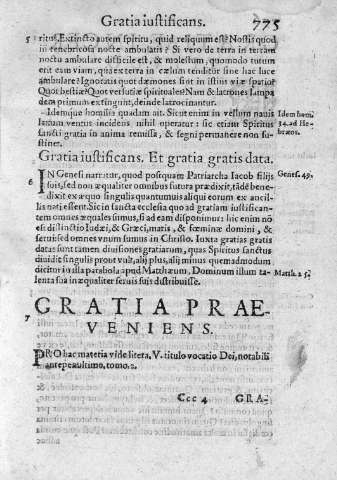 Gratia iustificans. 775
5 ritus. Extincto autem spiritu, quid reliquum est? Nostis quod
in tenebricosa nocte ambulatis? Si vero de terra in terram
noctu ambulare difficile est, & molestum, quomodo tutum
erit eam viam, quæ ex terra in cælum tenditur sine hac luce
ambulare? Ignoratis quot dæmones sint in istius viæ spatio?
Quot bestiæ? Quot versutiæ spiritoales? Nam & latrones lampa
dem primum extinguũt, deinde latrocinantur.
Idemque homilia quadam ait. Sicut enim in vellum nauis Idem hom.
laxum ventus incidens nihil operatur: sic etiam Spiritus 14. ad He-
sancti gratia in anima remissa, & segni permanere non su- bræos.
stinet.
Gratia iustificans. Et gratia gratis data.
6 IN Genesi narratur, quod posteaquam Patriarcha Iacob filijs Genes. 49.
suis, sed non æqualiter omnibus futura prædixit, tãdẽ bene-
dixit ex æquo singulis quantumuis aliqui eorum ex ancil-
lis nati essent. Sic in sancta ecclesia quo ad gratiam iustifican-
tem omnes æquales sumus, si ad eam disponimur: hic enim nõ
est distinctio Iudæi, & Græci, maris, & fœminæ domini, &
serui: sed omnes vnum sumus in Christo. Iuxta gratias gratis
datas sunt tamen diuisiones gratiarum, quas Spiritus sanctus
diuidit singulis prout vult, alij plus, alij minus quemadmodum
dicitur in illa parabola apud Matthæum, Dominum illum ta- Matth. 25.
lenta sua inæqualiter seruis suis distribuisse.
7 GRATIA PRAE-
VENIENS.
PRO hac materia vide litera, V. titulo vocatio Dei, notabili
antepenultimo, tomo. 2.
Ccc 4 GRA-